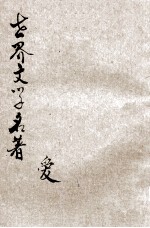 世界文学名著
愛